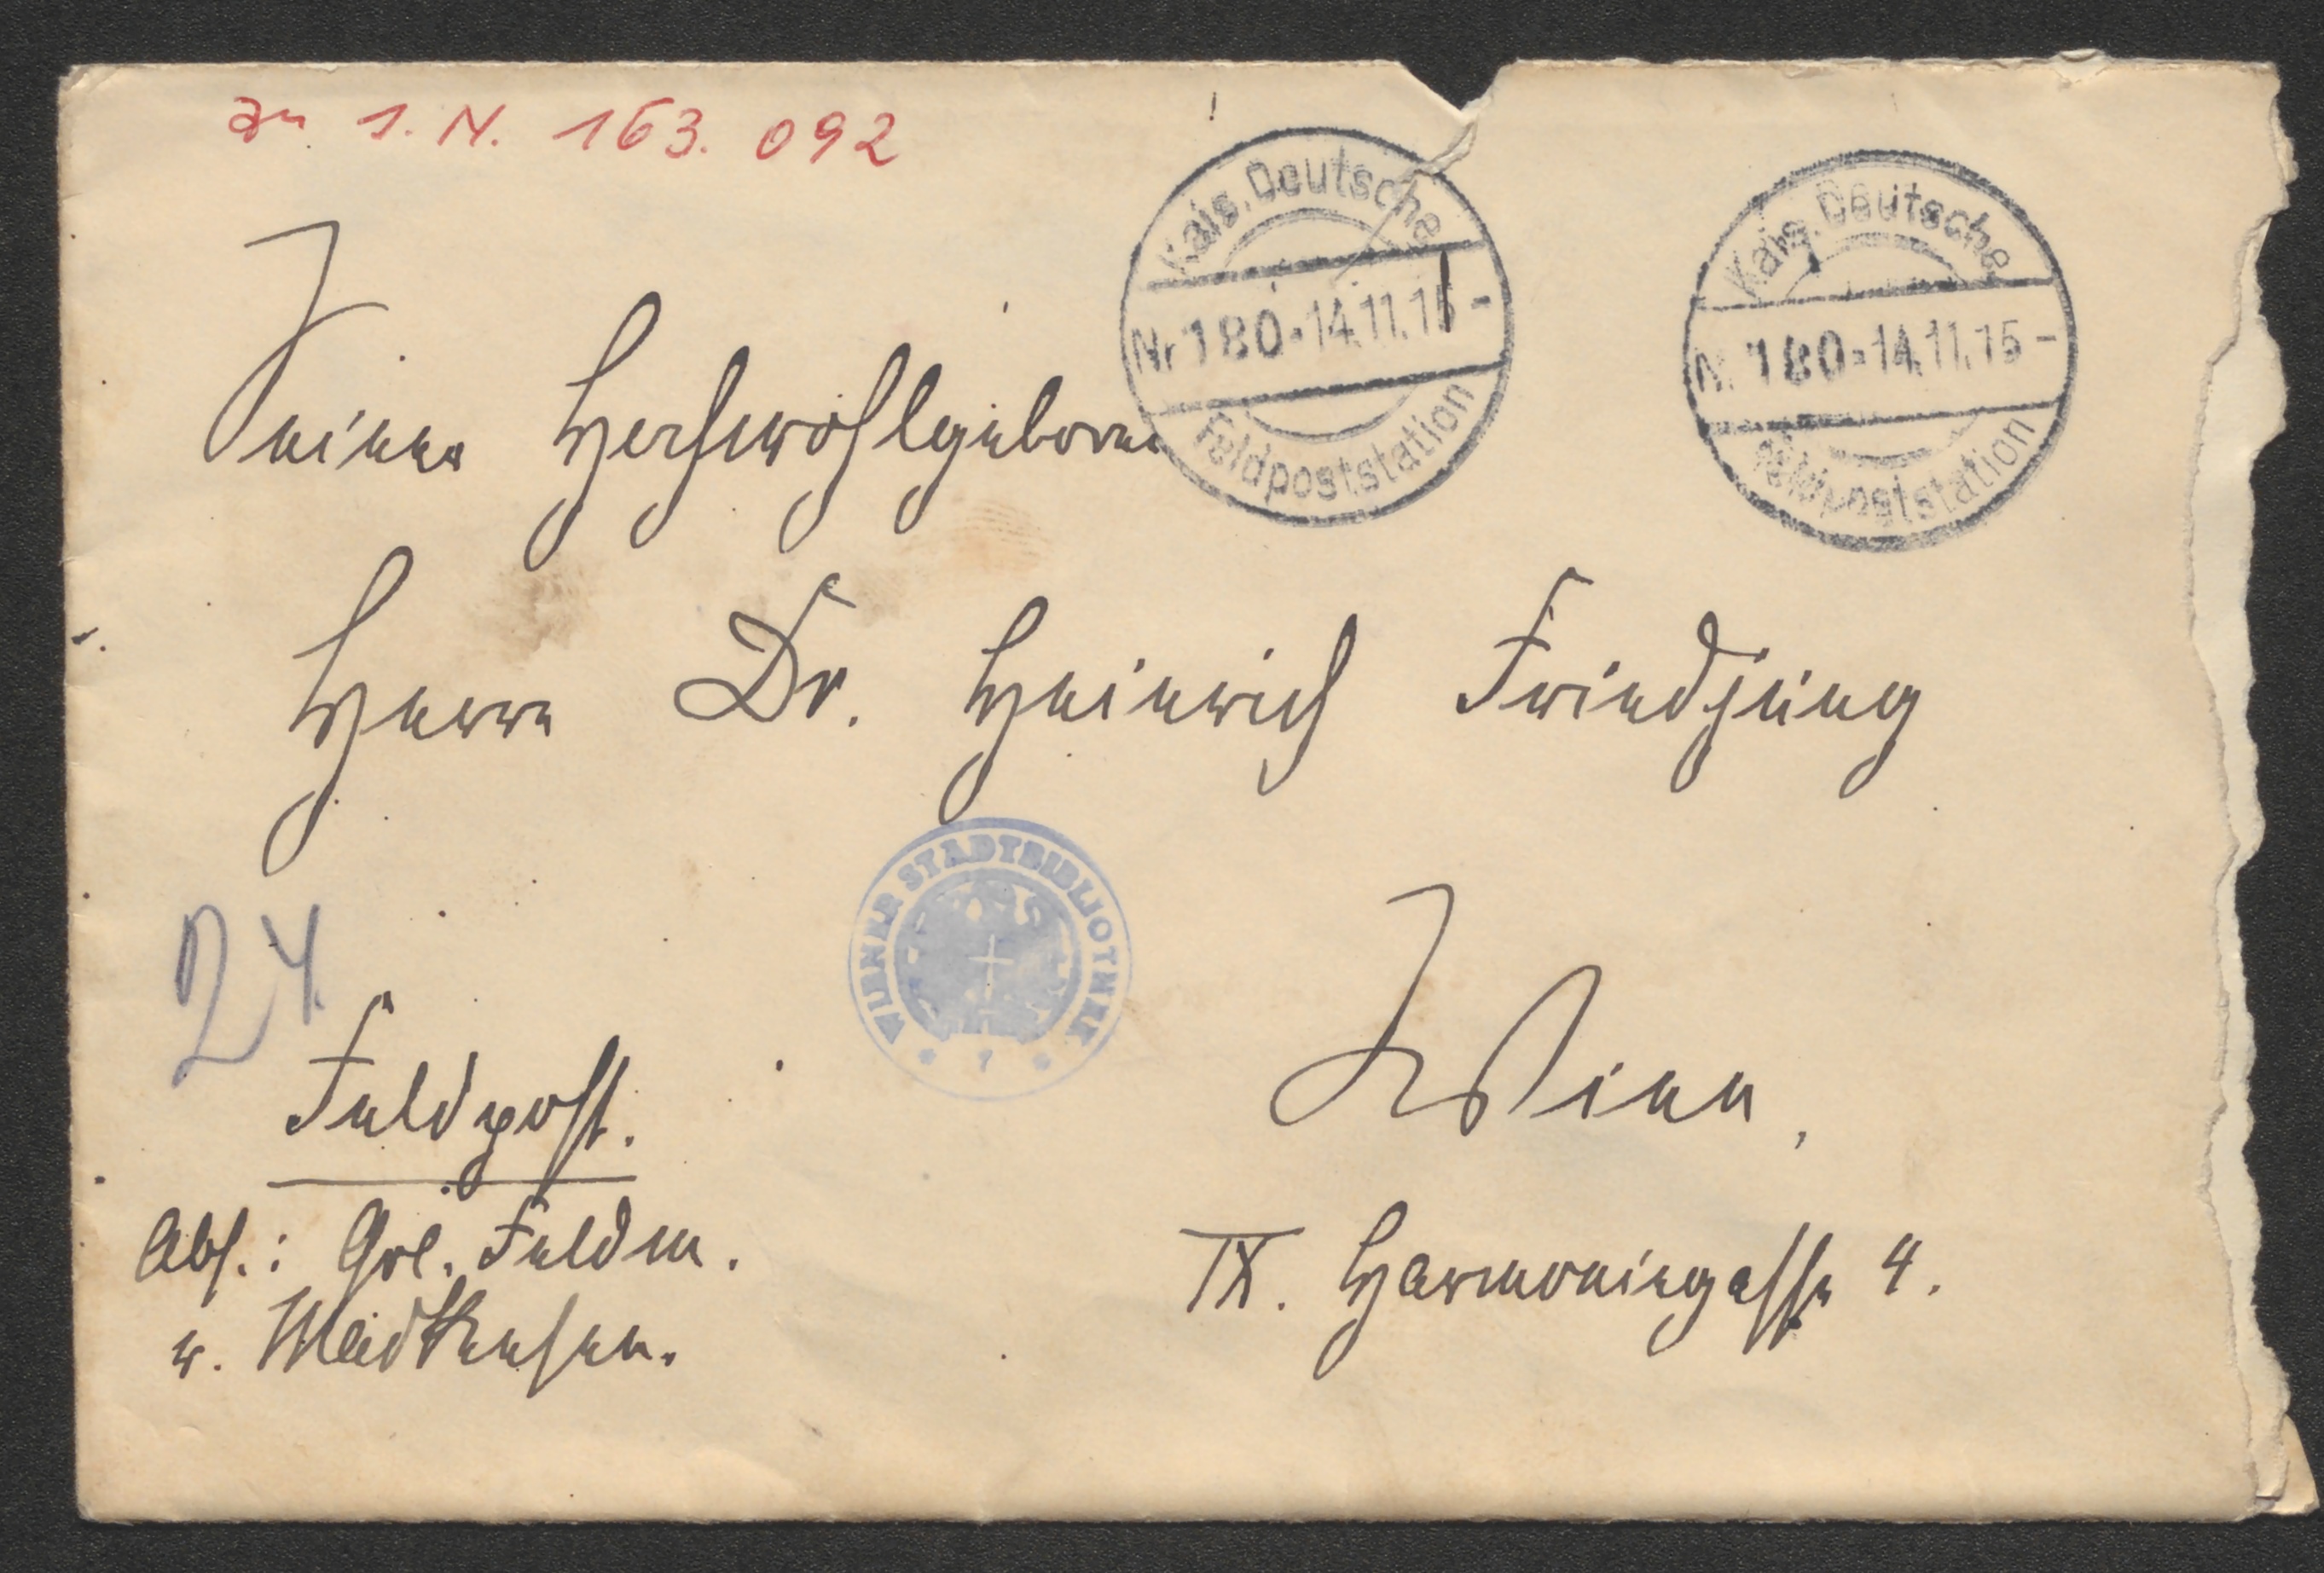 zu I. N. 163.092
Kais. Deutsche
Nr 180 -14.11.15-
Feldpoststation
Kais. Deutsche
Nr 180 -14.11.15-
Feldpoststation
Seiner Hochwohlgeboren
Herrn Dr. Heinrich Friedjung
WIENER STADTBIBLIOTHEK
24
Wien,
IX. Harmoniegasse 4.
Feldpost.
Abs.: Grl. Feldm.
v. Mackensen.